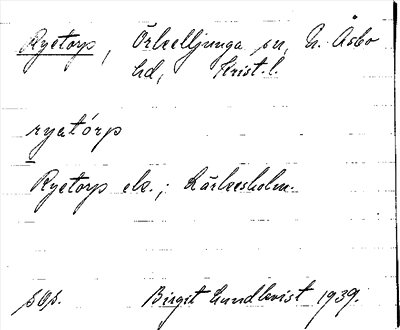 Ryetorp, Örkelljunga sn, N. Åsbo
hd, Krist. l.
ryatórp
Ryetorp ek.; Lärkesholm.
sep. Birgit Lundkvist 1939.